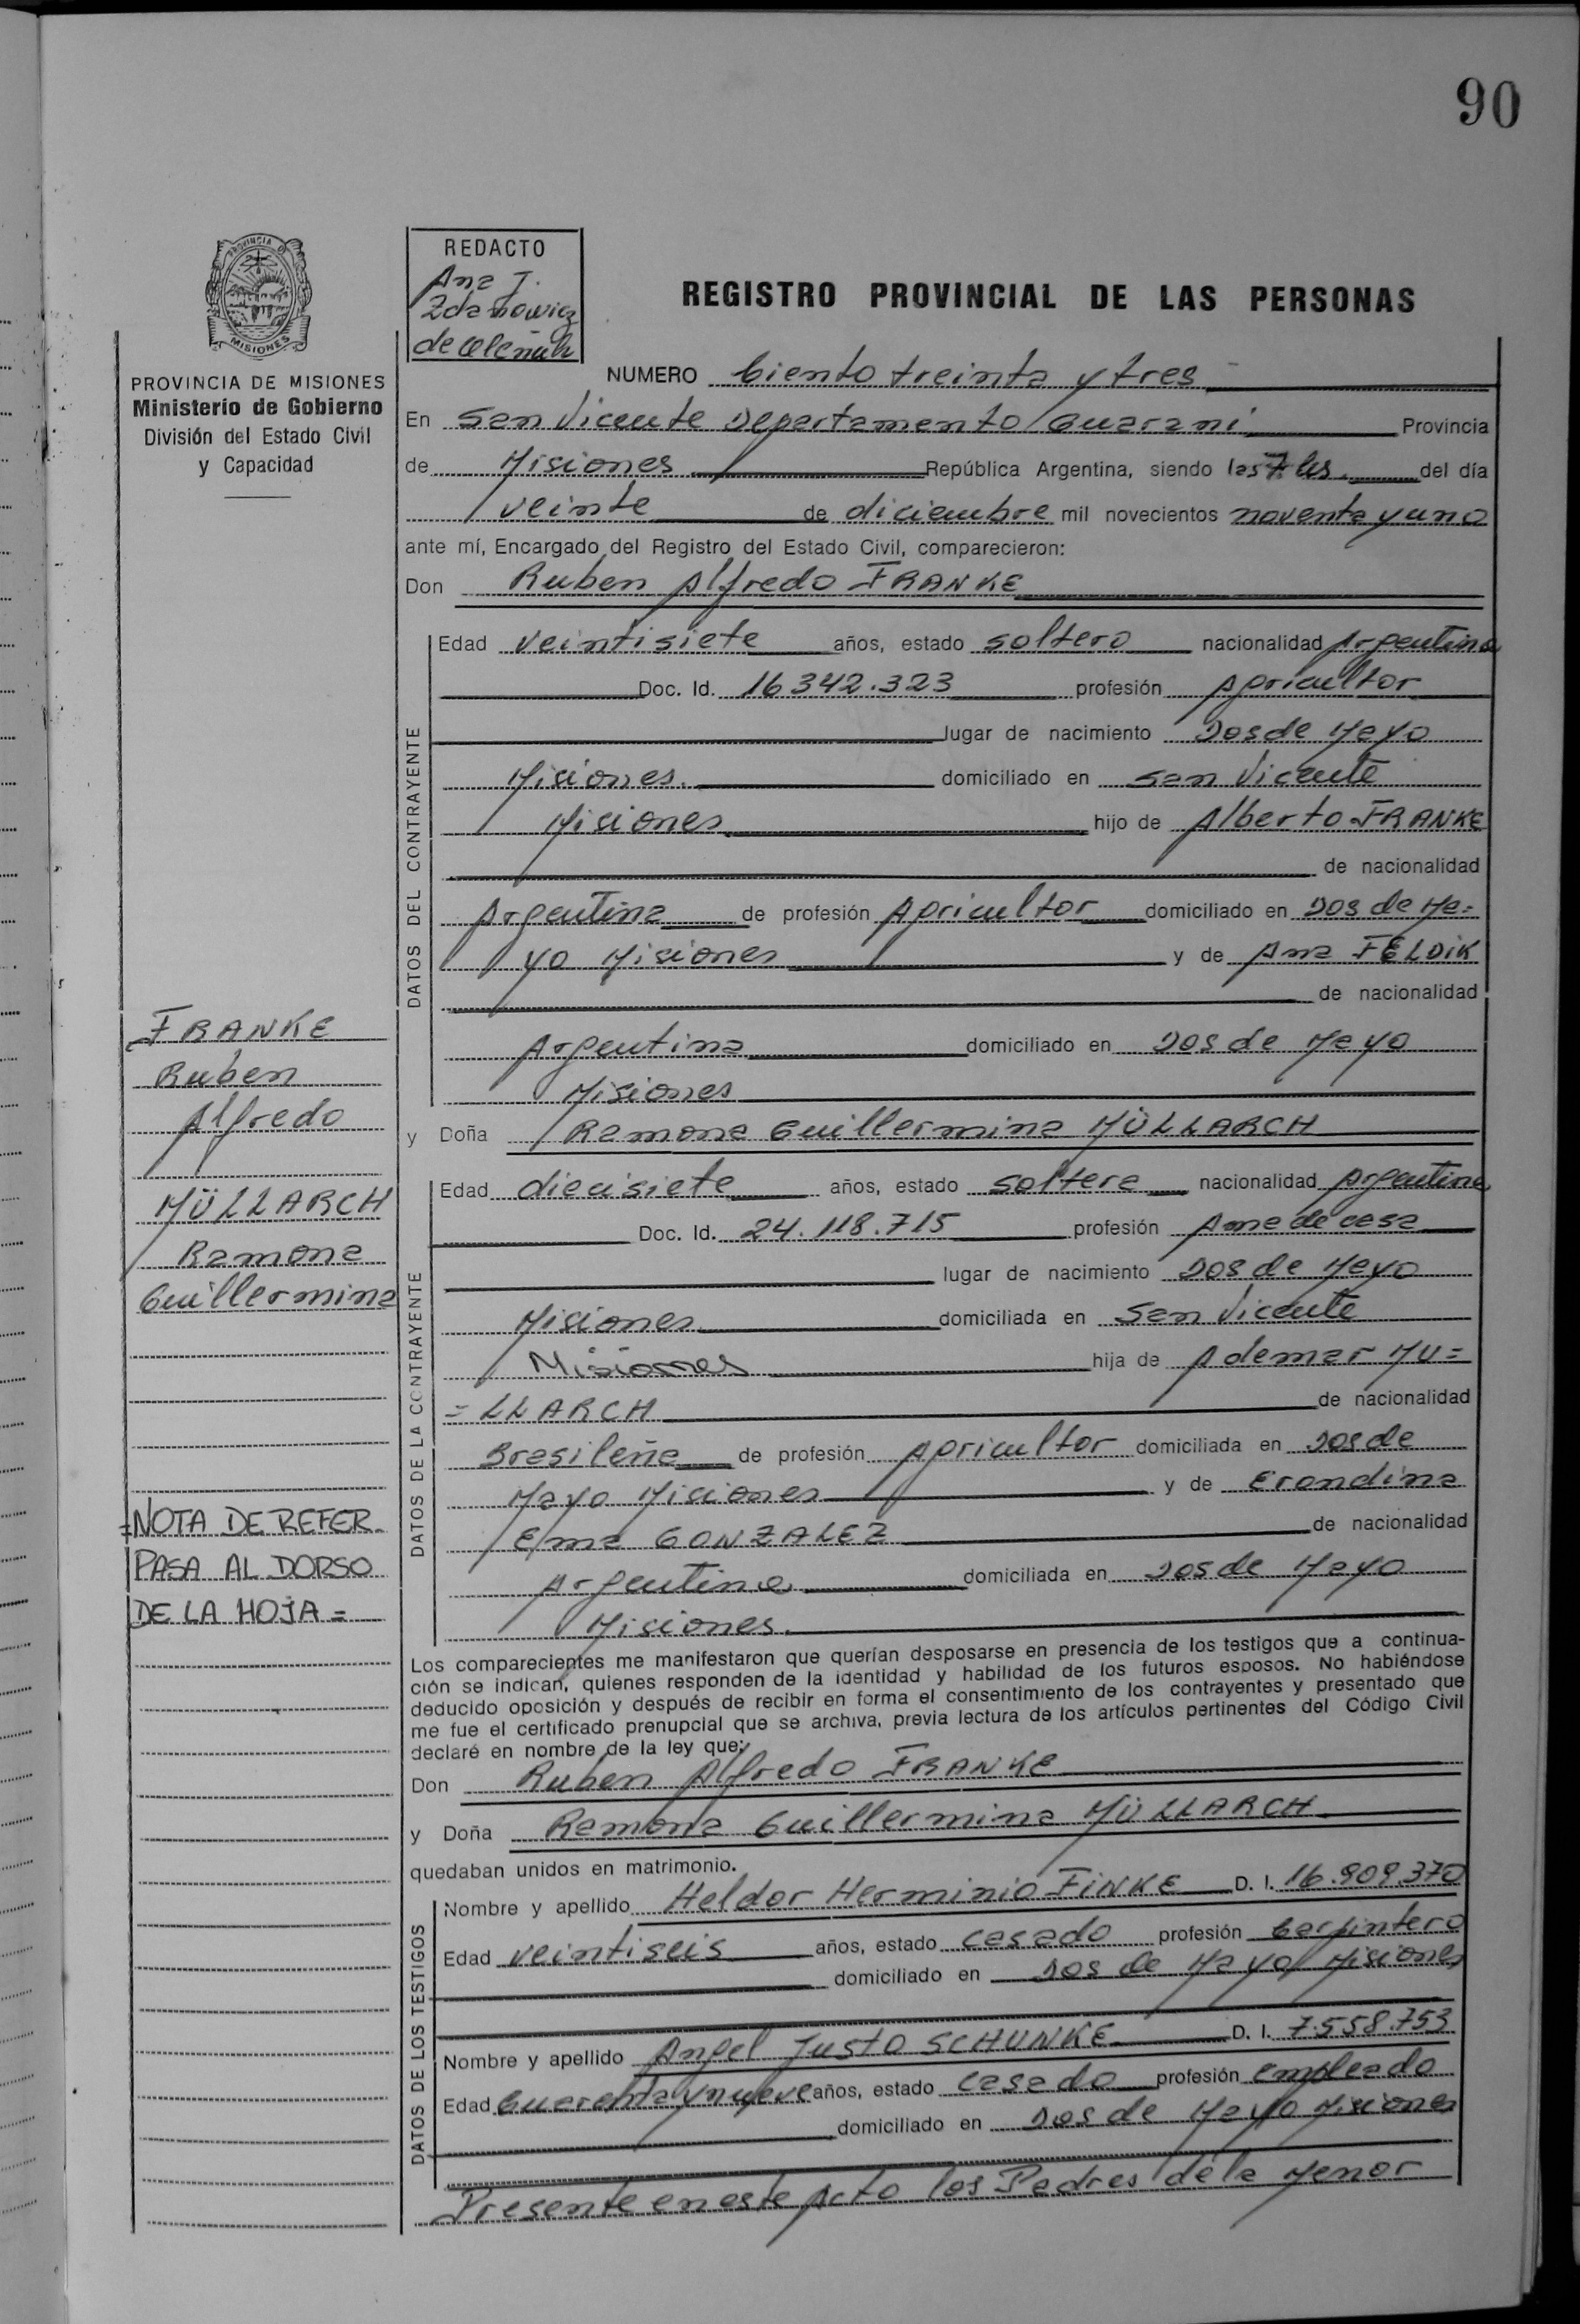 90
PROVINCIA DE
MISIONES
PROVINCIA DE MISIONES
Ministerio de Gobierno
División del Estado Civil
y Capacidad
REDACTO
Ana T.
Zdanowicz
de
REGISTRO PROVINCIAL DE LAS PERSONAS
NUMERO Ciento treinta y tres
En San Vicente Departamento Guarani Provincia
de Misiones República Argentina, siendo las 7 hs. del día
veinte de diciembre mil novecientos noventa y uno
ante mí, Encargado del Registro del Estado Civil, comparecieron:
Don Ruben Alfredo FRANKE
DATOS DEL CONTRAYENTE
Edad veintisiete años, estado soltero nacionalidad Argentina
Doc. Id. 16342.323 profesión Agricultor
lugar de nacimiento Dos de Mayo
Misiones. domiciliado en San Vicente
Misiones hijo de Alberto FRANKE
de nacionalidad
Argentina de profesión Agricultor domiciliado en Dos de Ma=
yo Misiones y de Ana FELDIK
de nacionalidad
Argentina domiciliado en Dos de Mayo
Misiones
y Doña Ramona Guillermina MÜLLARCH
DATOS DE LA CONTRAYENTE
Edad diecisiete años, estado soltera nacionalidad Argentina
Doc. Id. 24.118.715 profesión Ama de casa
lugar de nacimiento Dos de Mayo
Misiones domiciliada en San Vicente
Misiones hija de Ademar MU=
=LLARCH de nacionalidad
Brasileña de profesión Agricultor domiciliada en Dos de
Mayo Misiones y de Erondina
Elma GONZALEZ de nacionalidad
Argentina domiciliada en Dos de Mayo
Misiones.
Los comparecientes me manifestaron que querían desposarse en presencia de los testigos que a continua-
ción se indican, quienes responden de la identidad y habilidad de los futuros esposos. No habiéndose
deducido oposición y después de recibir en forma el consentimiento de los contrayentes y presentado que
me fue el certificado prenupcial que se archiva, previa lectura de los artículos pertinentes del Código Civil
declaré en nombre de la ley que:
Don Ruben Alfredo FRANKE
y Doña Ramona Guillermina MÜLLARCH
quedaban unidos en matrimonio.
DATOS DE LOS TESTIGOS
Nombre y apellido Heldor Herminio FINKE D. I. 16.909.370
Edad veintiseis años, estado casado profesión Carpintero
domiciliado en Dos de Mayo Misiones
Nombre y apellido Angel Justo SCHUNKE D. I. 7.558.753
Edad Cuarenta y nueve años, estado casado profesión empleado
domiciliado en Dos de Mayo Misiones
Presente en este Acto los Padres de la Menor
FRANKE
Ruben
Alfredo
MÜLLARCH
Ramona
Guillermina
=NOTA DE REFER.
PASA AL DORSO
DE LA HOJA =